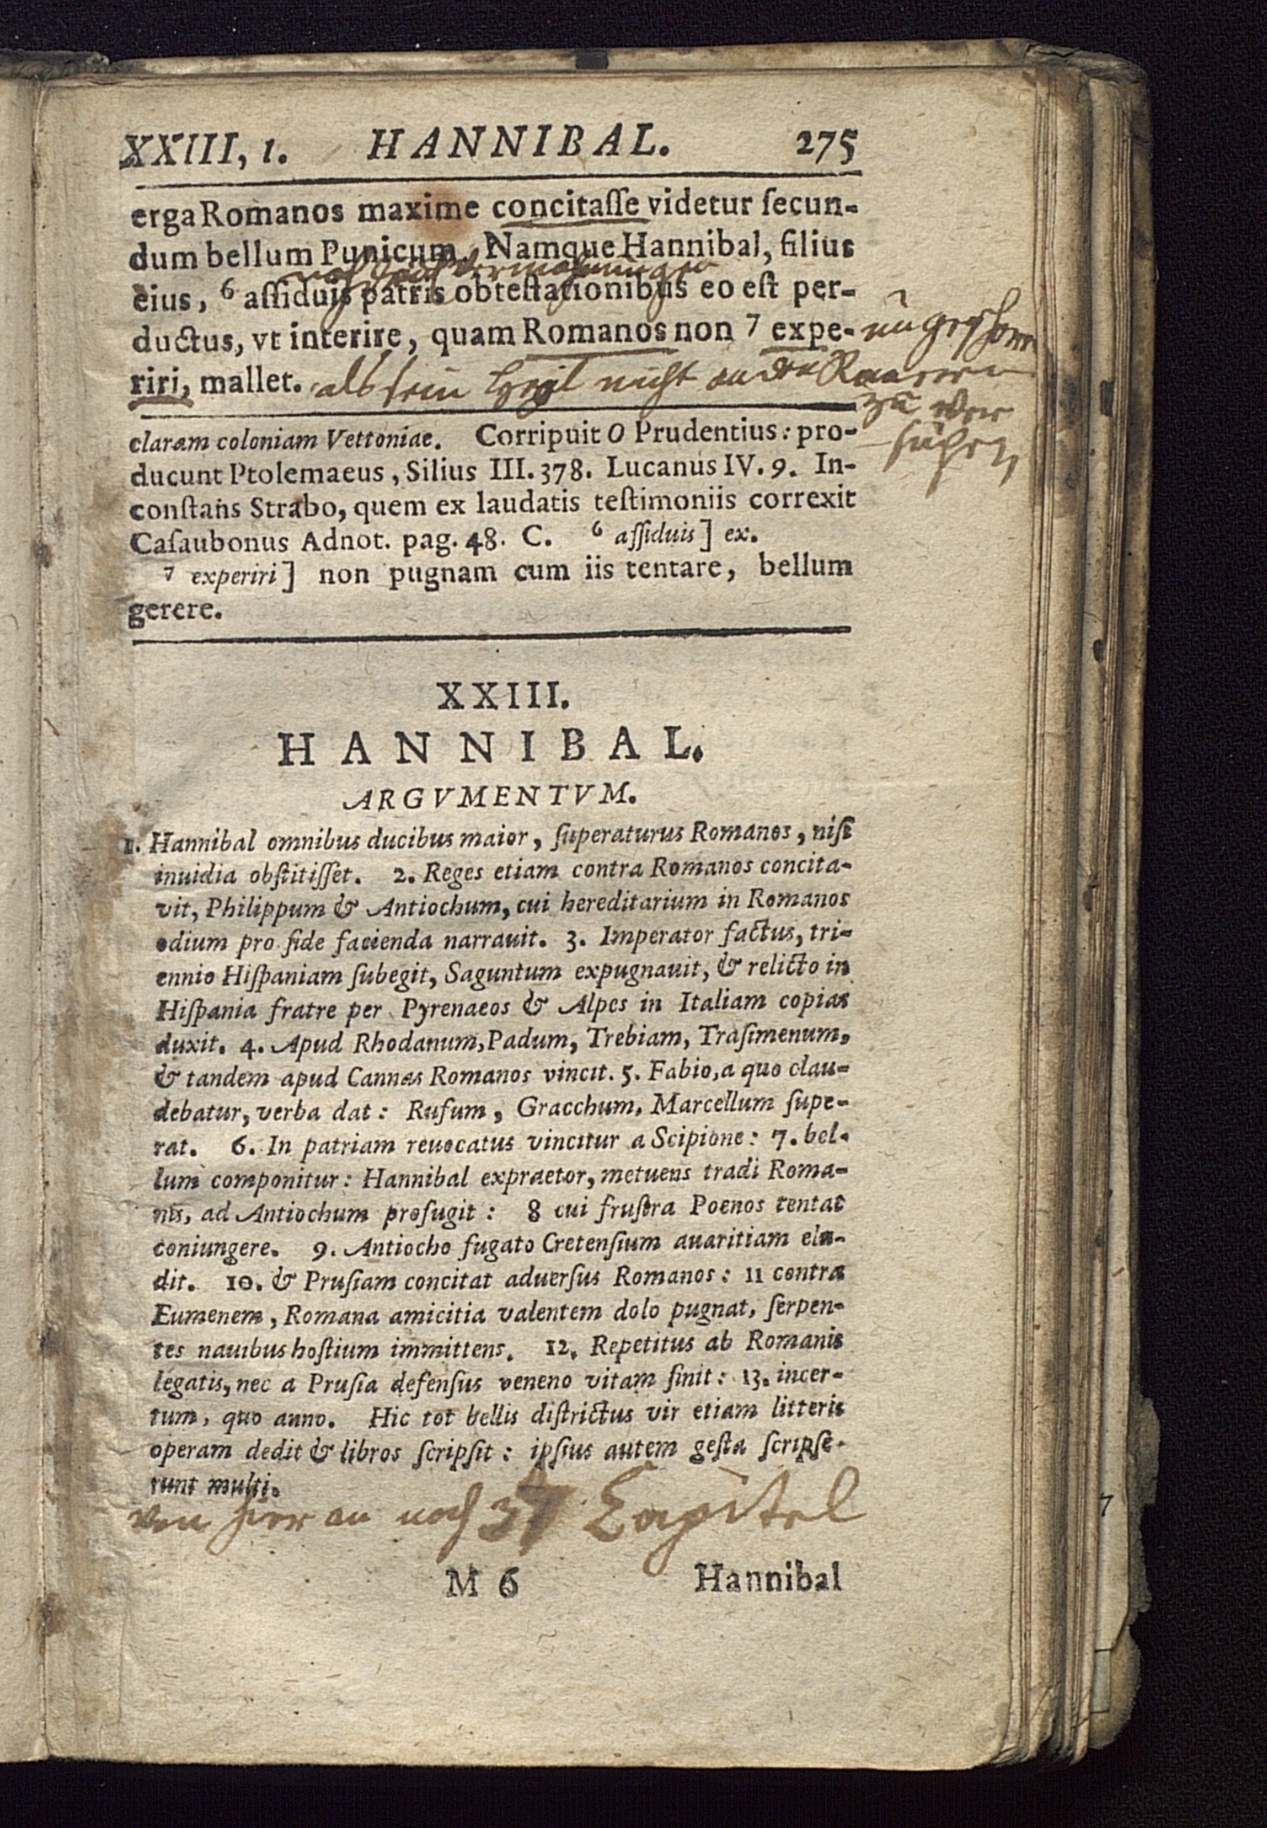 XXIII, 1. HANNIBAL. 275
erga Romanos maxime concitaſſe videtur ſecun-
dum bellum Punicum. Namque Hannibal, filius
eius, 6 aſſiduis patris obteſtationibus eo eſt per-
ductus, vt interire, quam Romanos non 7 expe-
riri, mallet. als sein Heil nicht an den
claram coloniam Vettoniae. Corripuit O Prudentius: pro-
ducunt Ptolemaeus, Silius III. 378. Lucanus IV. 9. In-
conſtans Strabo, quem ex laudatis teſtimoniis correxit
Caſaubonus Adnot. pag. 48. C. 6 aſſiduis] ex.
7 experiri] non pugnam cum iis tentare, bellum
gerere.
XXIII.
HANNIBAL.
ARGVMENTVM.
1. Hannibal omnibus ducibus maior, ſuperaturus Romanos, niſi
inuidia obſtitiſſet. 2. Reges etiam contra Romanos concita-
vit, Philippum & Antiochum, cui hereditarium in Romanos
odium pro fide facienda narrauit. 3. Imperator factus, tri-
ennio Hiſpaniam ſubegit, Saguntum expugnauit, & relicto in
Hiſpania fratre per Pyrenaeos & Alpes in Italiam copias
duxit. 4. Apud Rhodanum, Padum, Trebiam, Traſimenum,
& tandem apud Cannas Romanos vincit. 5. Fabio, a quo clau-
debatur, verba dat: Rufum, Gracchum, Marcellum ſupe-
rat. 6. In patriam reuocatus vincitur a Scipione: 7. bel-
lum componitur: Hannibal expraetor, metuens tradi Roma-
nis, ad Antiochum profugit: 8 cui fruſtra Poenos tentat
coniungere. 9. Antiocho fugato Cretenſium auaritiam elu-
dit. 10. & Pruſiam concitat aduerſus Romanos: 11 contra
Eumenem, Romana amicitia valentem dolo pugnat, ſerpen-
tes nauibus hoſtium immittens. 12. Repetitus ab Romanis
legatis, nec a Pruſia defenſus veneno vitam finit: 13. incer-
tum, quo anno. Hic tot bellis diſtrictus vir etiam litteris
operam dedit & libros ſcripſit: ipſius autem geſta ſcripſe-
runt multi.
von hier an noch 37 Capitel
M 6 Hannibal